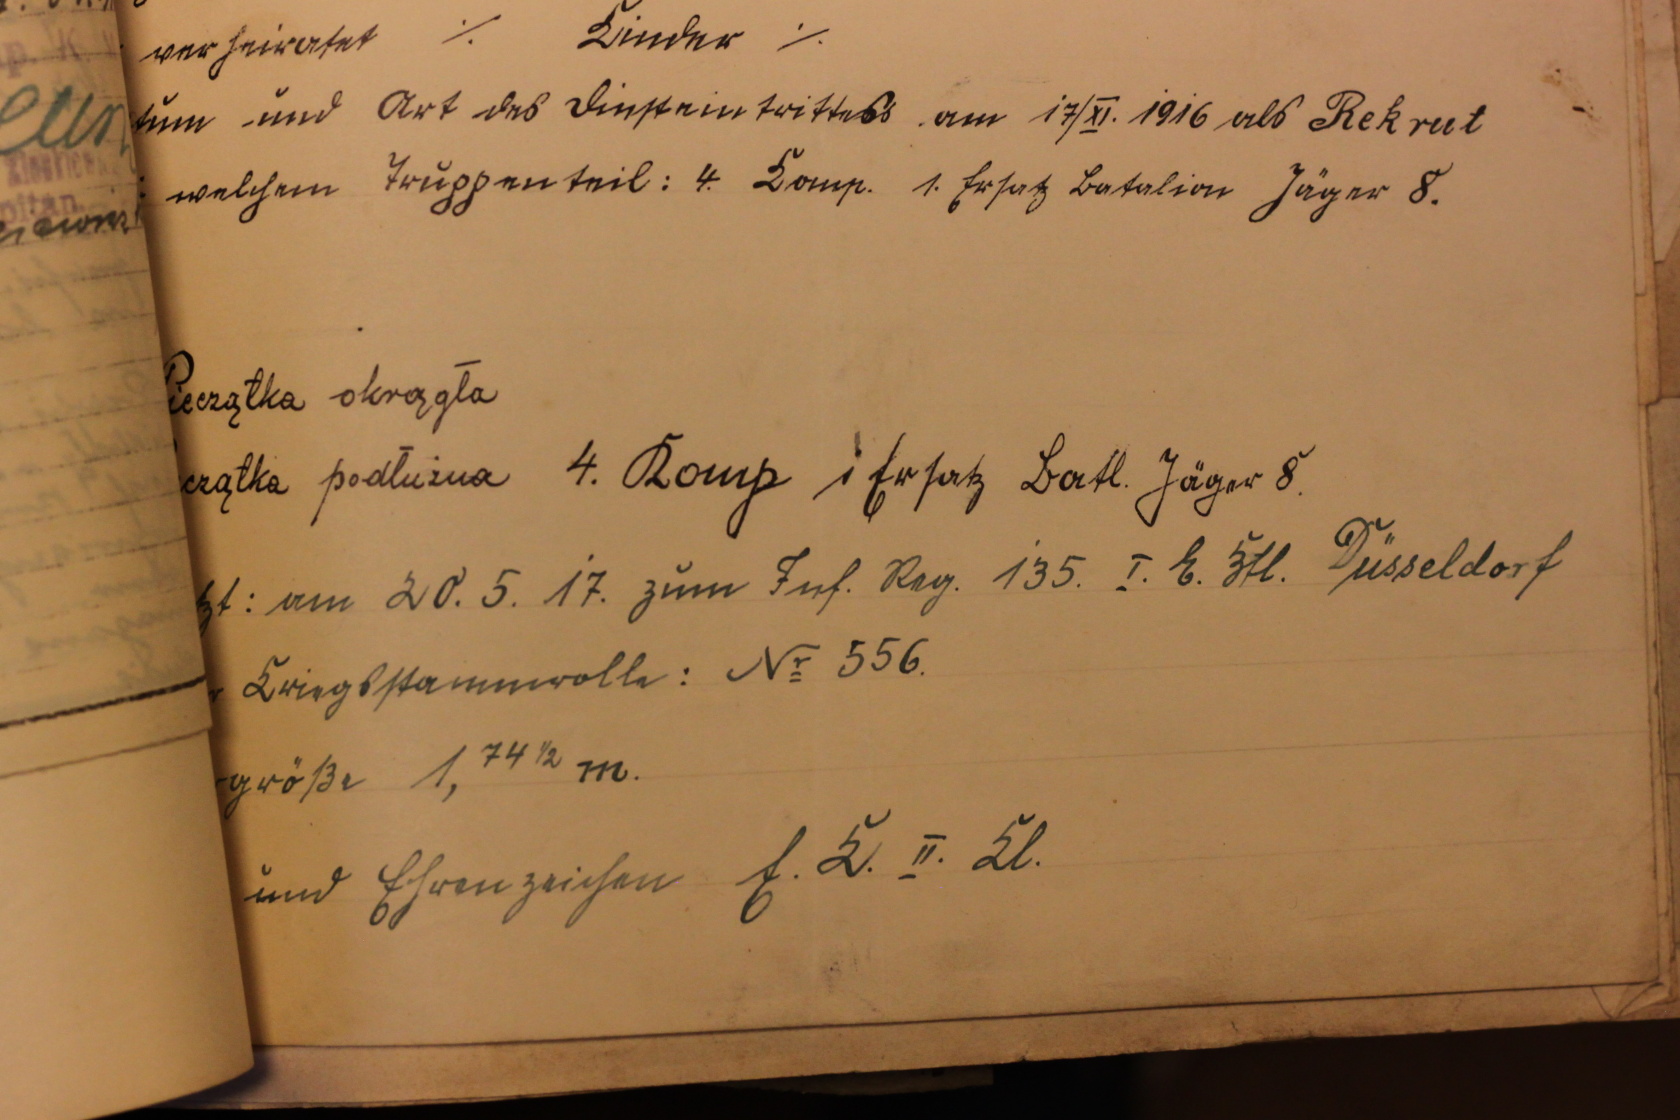 verheiratet ·/. Kinder ·/.
tum und Art des Diensteintrittess am 17/XI. 1916 als Rekrut
: welchem Truppenteil: 4. Komp. 1. Ersatz Batalion Jäger 8.
Pieczątka okrągła
czątka podłużna 4. Komp 1 Ersatz Batl. Jäger 8.
tzt: am 20. 5. 17. zum Inf. Reg. 135. I. E. Btl. Düsseldorf
r Kriegsstammrolle: Nr 556.
größe 1,74 1/2 m.
und Ehrenzeichen E. K. II. Kl.